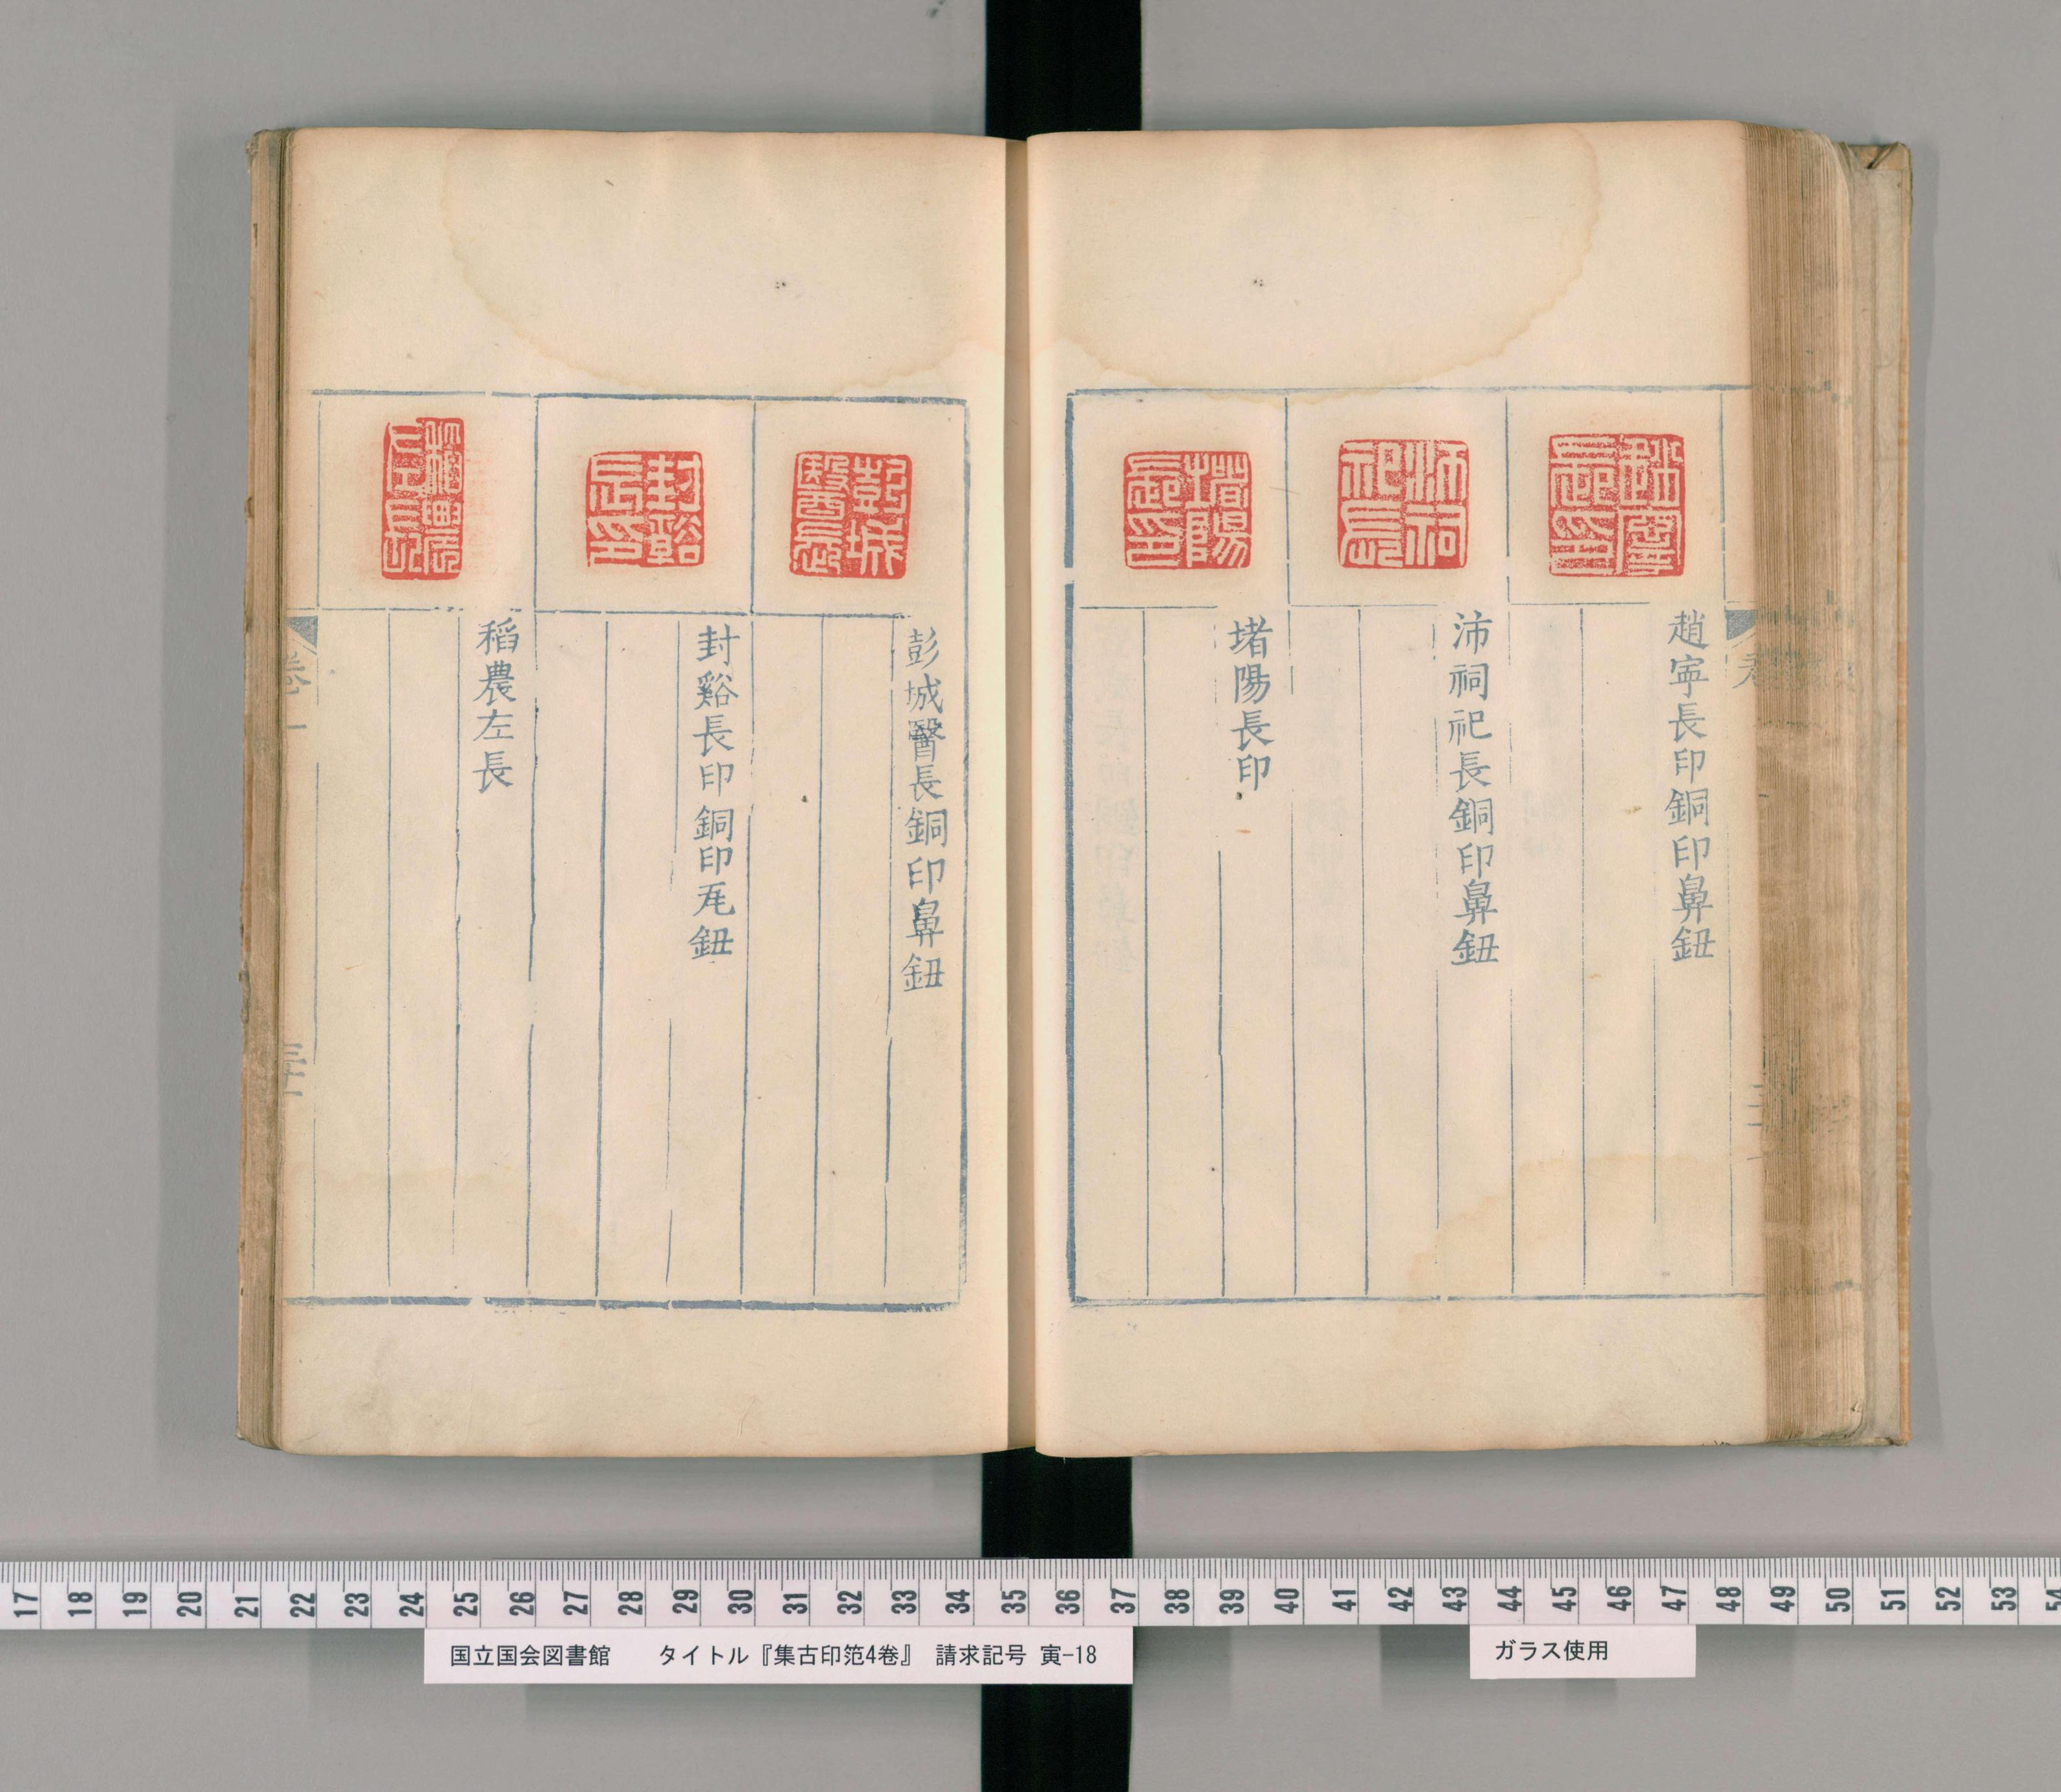 趙寕長印
趙寕長印銅印鼻鈕
沛祠祀長
沛祠祀長銅印鼻鈕
堵陽長印
堵陽長印
彭城醫長
彭城醫長銅印鼻鈕
封谿長印
封谿長印銅印兎鈕
稻農左長
稻農左長
卷一
三十一
17 18 19 20 21 22 23 24 25 26 27 28 29 30 31 32 33 34 35 36 37 38 39 40 41 42 43 44 45 46 47 48 49 50 51 52 53 54
国立国会図書館 タイトル『集古印笵4巻』 請求記号 寅-18
ガラス使用